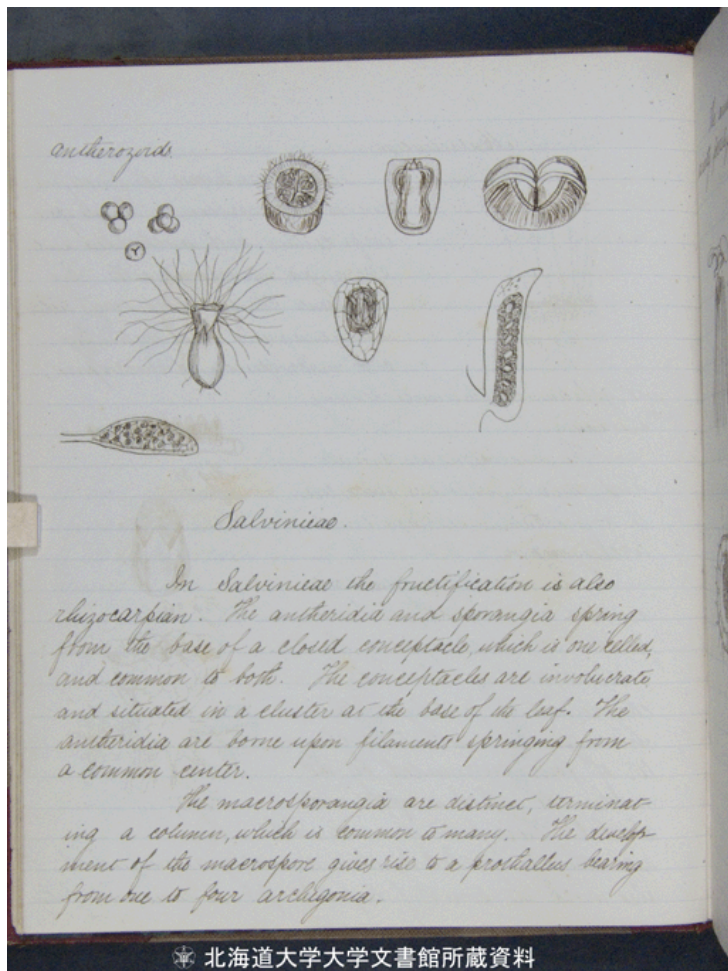 antherozoids.
Salvinieae.
In Salvinieae the fructification is also
rhizocarpian. The antheridia and sporangia spring
from the base of a closed conceptacle, which is one celled,
and common to both. The conceptacles are involucrate
and situated in a cluster at the base of the leaf. The
antheridia are borne upon filaments springing from
a common center.
The macrosporangia are distinct, terminat-
ing a column, which is common to many. The develop-
ment of the macrospore gives rise to a prothallus bearing
from one to four archegonia.
北海道大学大学文書館所蔵資料